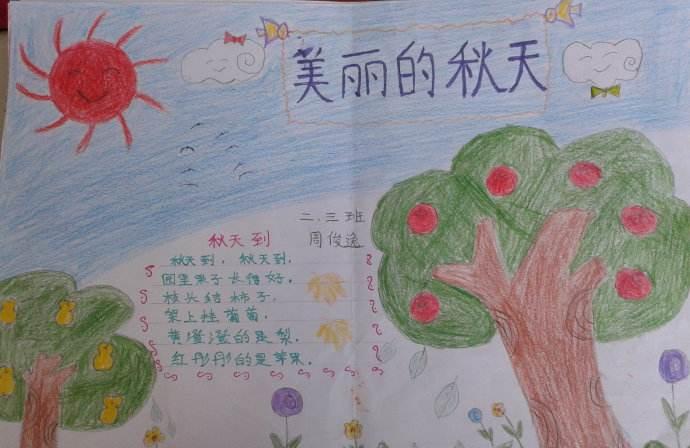 美丽的秋天
二.三班
秋天到
周俊逸
秋天到，秋天到，
园里果子长得好，
枝头结柿子，
架上挂葡萄，
黄澄澄的是梨，
红彤彤的是苹果。